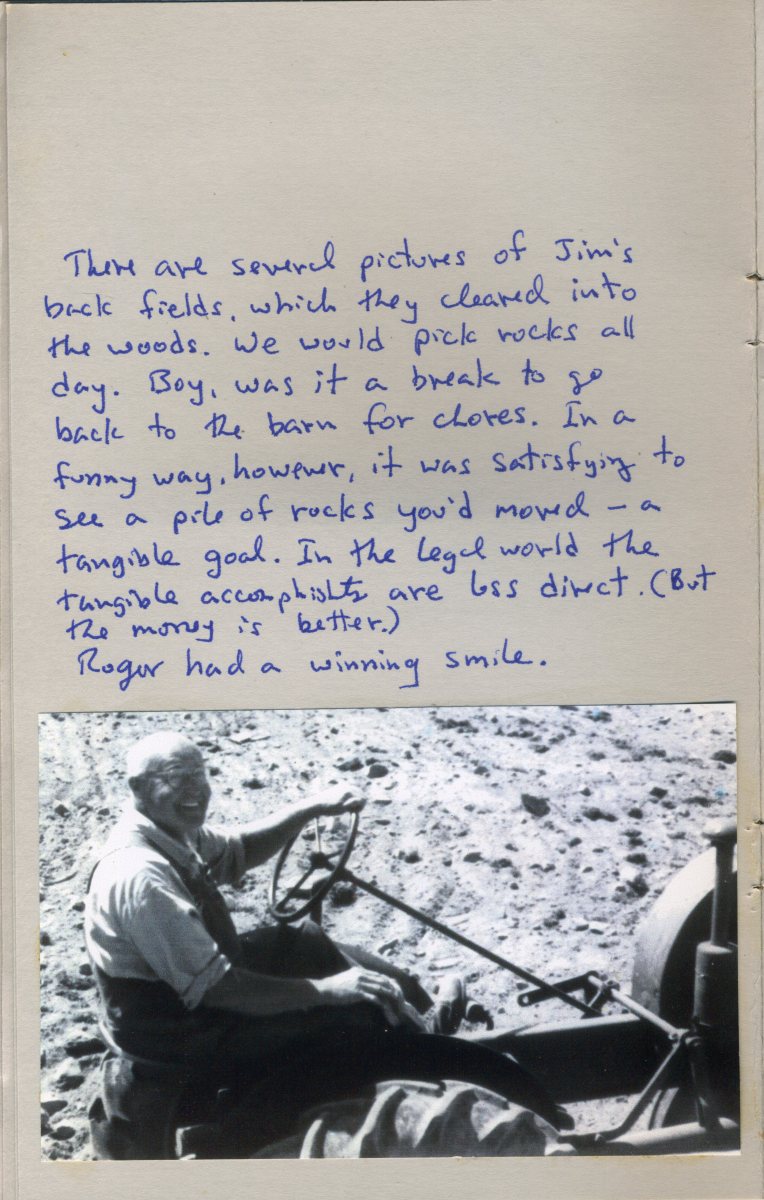 There are several pictures of Jim's
back fields, which they cleared into
the woods. We would pick rocks all
day. Boy, was it a break to go
back to the barn for chores. In a
funny way, however, it was satisfying to
see a pile of rocks you'd moved – a
tangible goal. In the legal world the
tangible accomplishts are less direct. (But
the money is better.)
Roger had a winning smile.